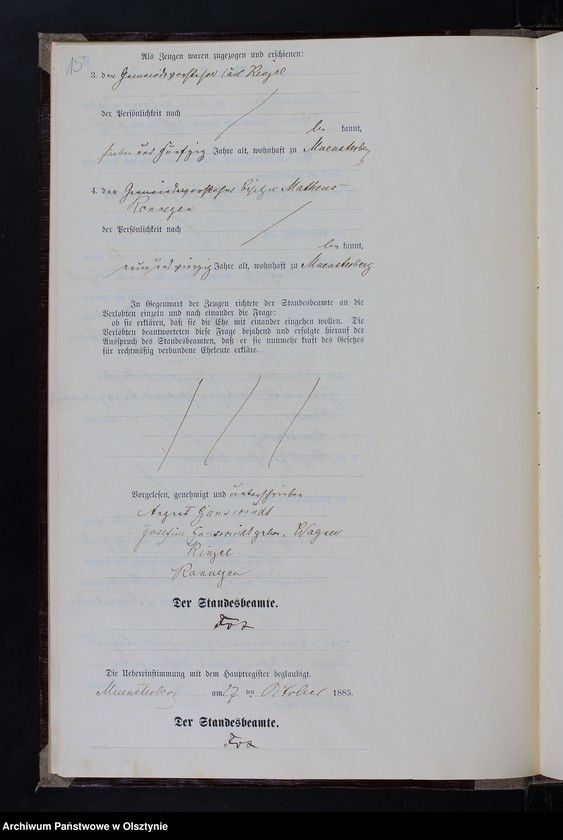 15
Als Zeugen waren zugezogen und erschienen:
3. der Gemeindevorsteher Carl
der Persönlichkeit nach
be kannt,
sieben und fünfzig Jahre alt, wohnhaft zu Muensterberg
4. der Gemeindevorsteher Besitzer Matheus
der Persönlichkeit nach
be kannt,
neun und vierzig Jahre alt, wohnhaft zu Muensterberg
In Gegenwart der Zeugen richtete der Standesbeamte an die
Verlobten einzeln und nach einander die Frage:
ob sie erklären, daß sie die Ehe mit einander eingehen wollen. Die
Verlobten beantworteten diese Frage bejahend und erfolgte hierauf der
Ausspruch des Standesbeamten, daß er sie nunmehr kraft des Gesetzes
für rechtmäßig verbundene Eheleute erkläre.
Vorgelesen, genehmigt und unterschrieben
August Ganswindt
Josefine Ganswindt gebor. Wagner
Der Standesbeamte.
Die Uebereinstimmung mit dem Hauptregister beglaubigt.
Muensterberg am 27 ten October 1885.
Der Standesbeamte.
Archiwum Państwowe w Olsztynie